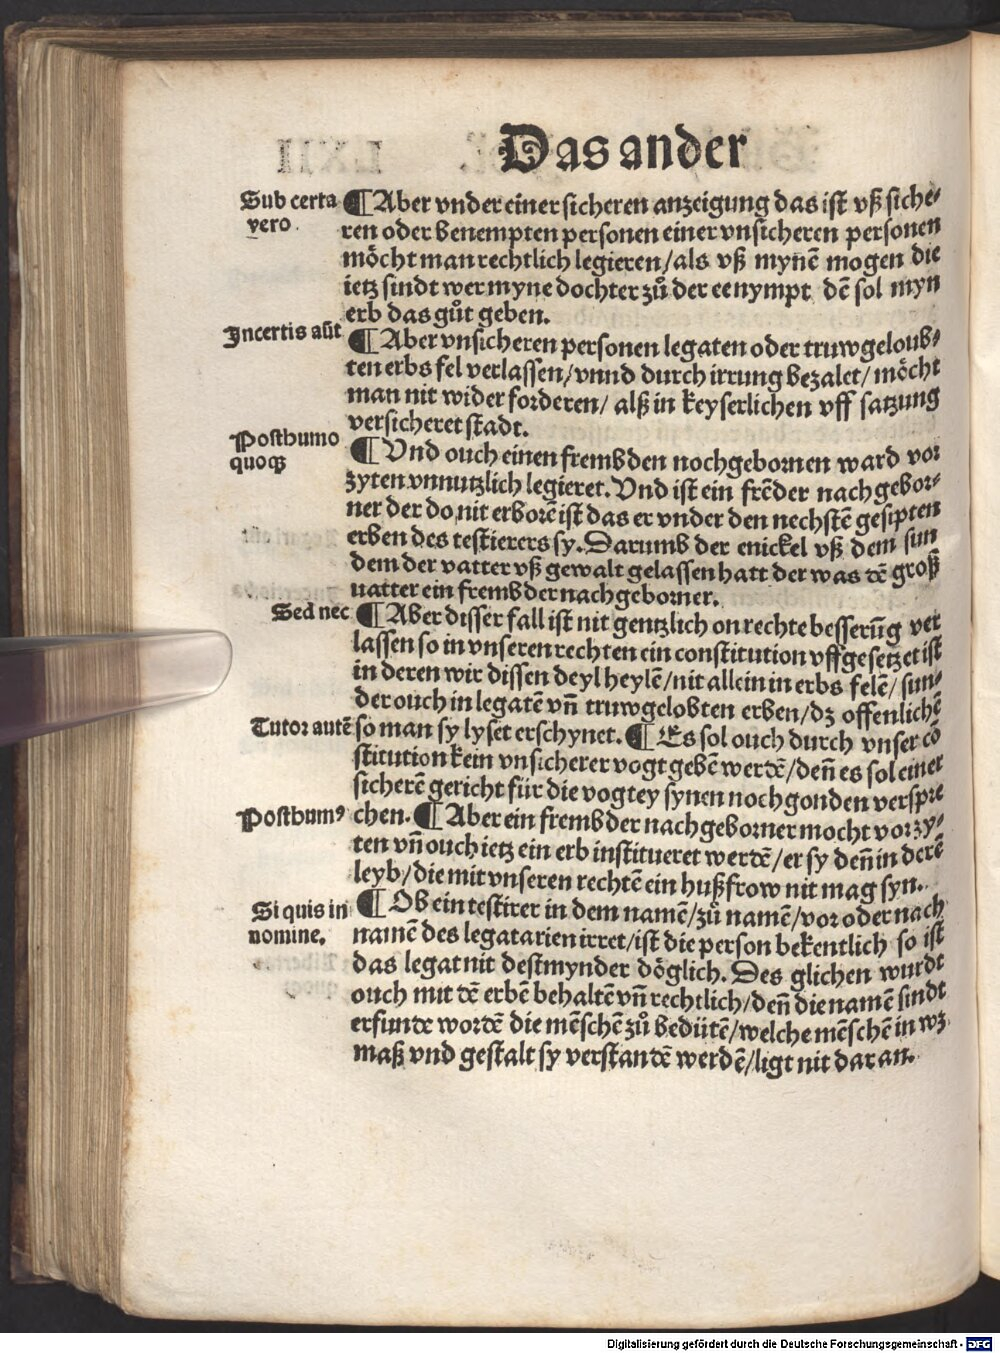 Das ander
Sub certa
vero.
¶ Aber vnder einer sicheren anzeigung das ist vß siche⸗
ren oder benempten personen einer vnsicheren personen
möcht man rechtlich legieren/als vß mynē mogen die
ietz sindt wer myne dochter zů der ee nympt dē sol myn
erb das gůt geben.
Incertis aūt
¶ Aber vnsicheren personen legaten oder truwgeloub⸗
ten erbs fel verlassen/vnnd durch irrung bezalet/möcht
man nit wider forderen/ alß in keyserlichen vff satzung
versicheret stadt.
Posthumo
quoqꝫ
¶ Vnd ouch einen frembden nochgebornen ward vor
zyten vnnutzlich legieret. Vnd ist ein frēder nachgebor⸗
ner der do nit erborē ist das er vnder den nechstē gesipten
erben des testierers sy. Darumb der enickel vß dem sun
dem der vatter vß gewalt gelassen hatt der was dē groß
uatter ein frembder nachgeborner.
Sed nec
¶ Aber disser fall ist nit gentzlich on rechte besserūg ver
lassen so in vnseren rechten ein constitution vffgesetzet ist
in deren wir dissen deyl heylē/nit allein in erbs felē/ sun⸗
der ouch in legatē vn̄ truwgelobten erben/dz offenlichē
Tutor autē
so man sy lyset erschynet. ¶ Es sol ouch durch vnser cō
stitution kein vnsicherer vogt gebē werdē/den̄ es sol einer
sicherē gericht für die vogtey synen nochgonden verspre
Posthumꝰ
chen. ¶ Aber ein frembder nachgeborner mocht vor zy⸗
ten vn̄ ouch ietz ein erb institueret werdē/er sy den̄ in derē
leyb/die mit vnseren rechtē ein hußfrow nit mag syn.
Si quis in
nomine.
¶ Ob ein testirer in dem namē/zů namē/vor oder nach
namē des legatarien irret/ist die person bekentlich so ist
das legat nit destmynder döglich. Des glichen wurdt
ouch mit dē erbē behaltē vn̄ rechtlich/den̄ die namē sindt
erfundē wordē die mēschē zů bedütē/welche mēschē in wz
maß vnd gestalt sy verstandē werdē/ligt nit dar an.
Digitalisierung gefördert durch die Deutsche Forschungsgemeinschaft - DFG